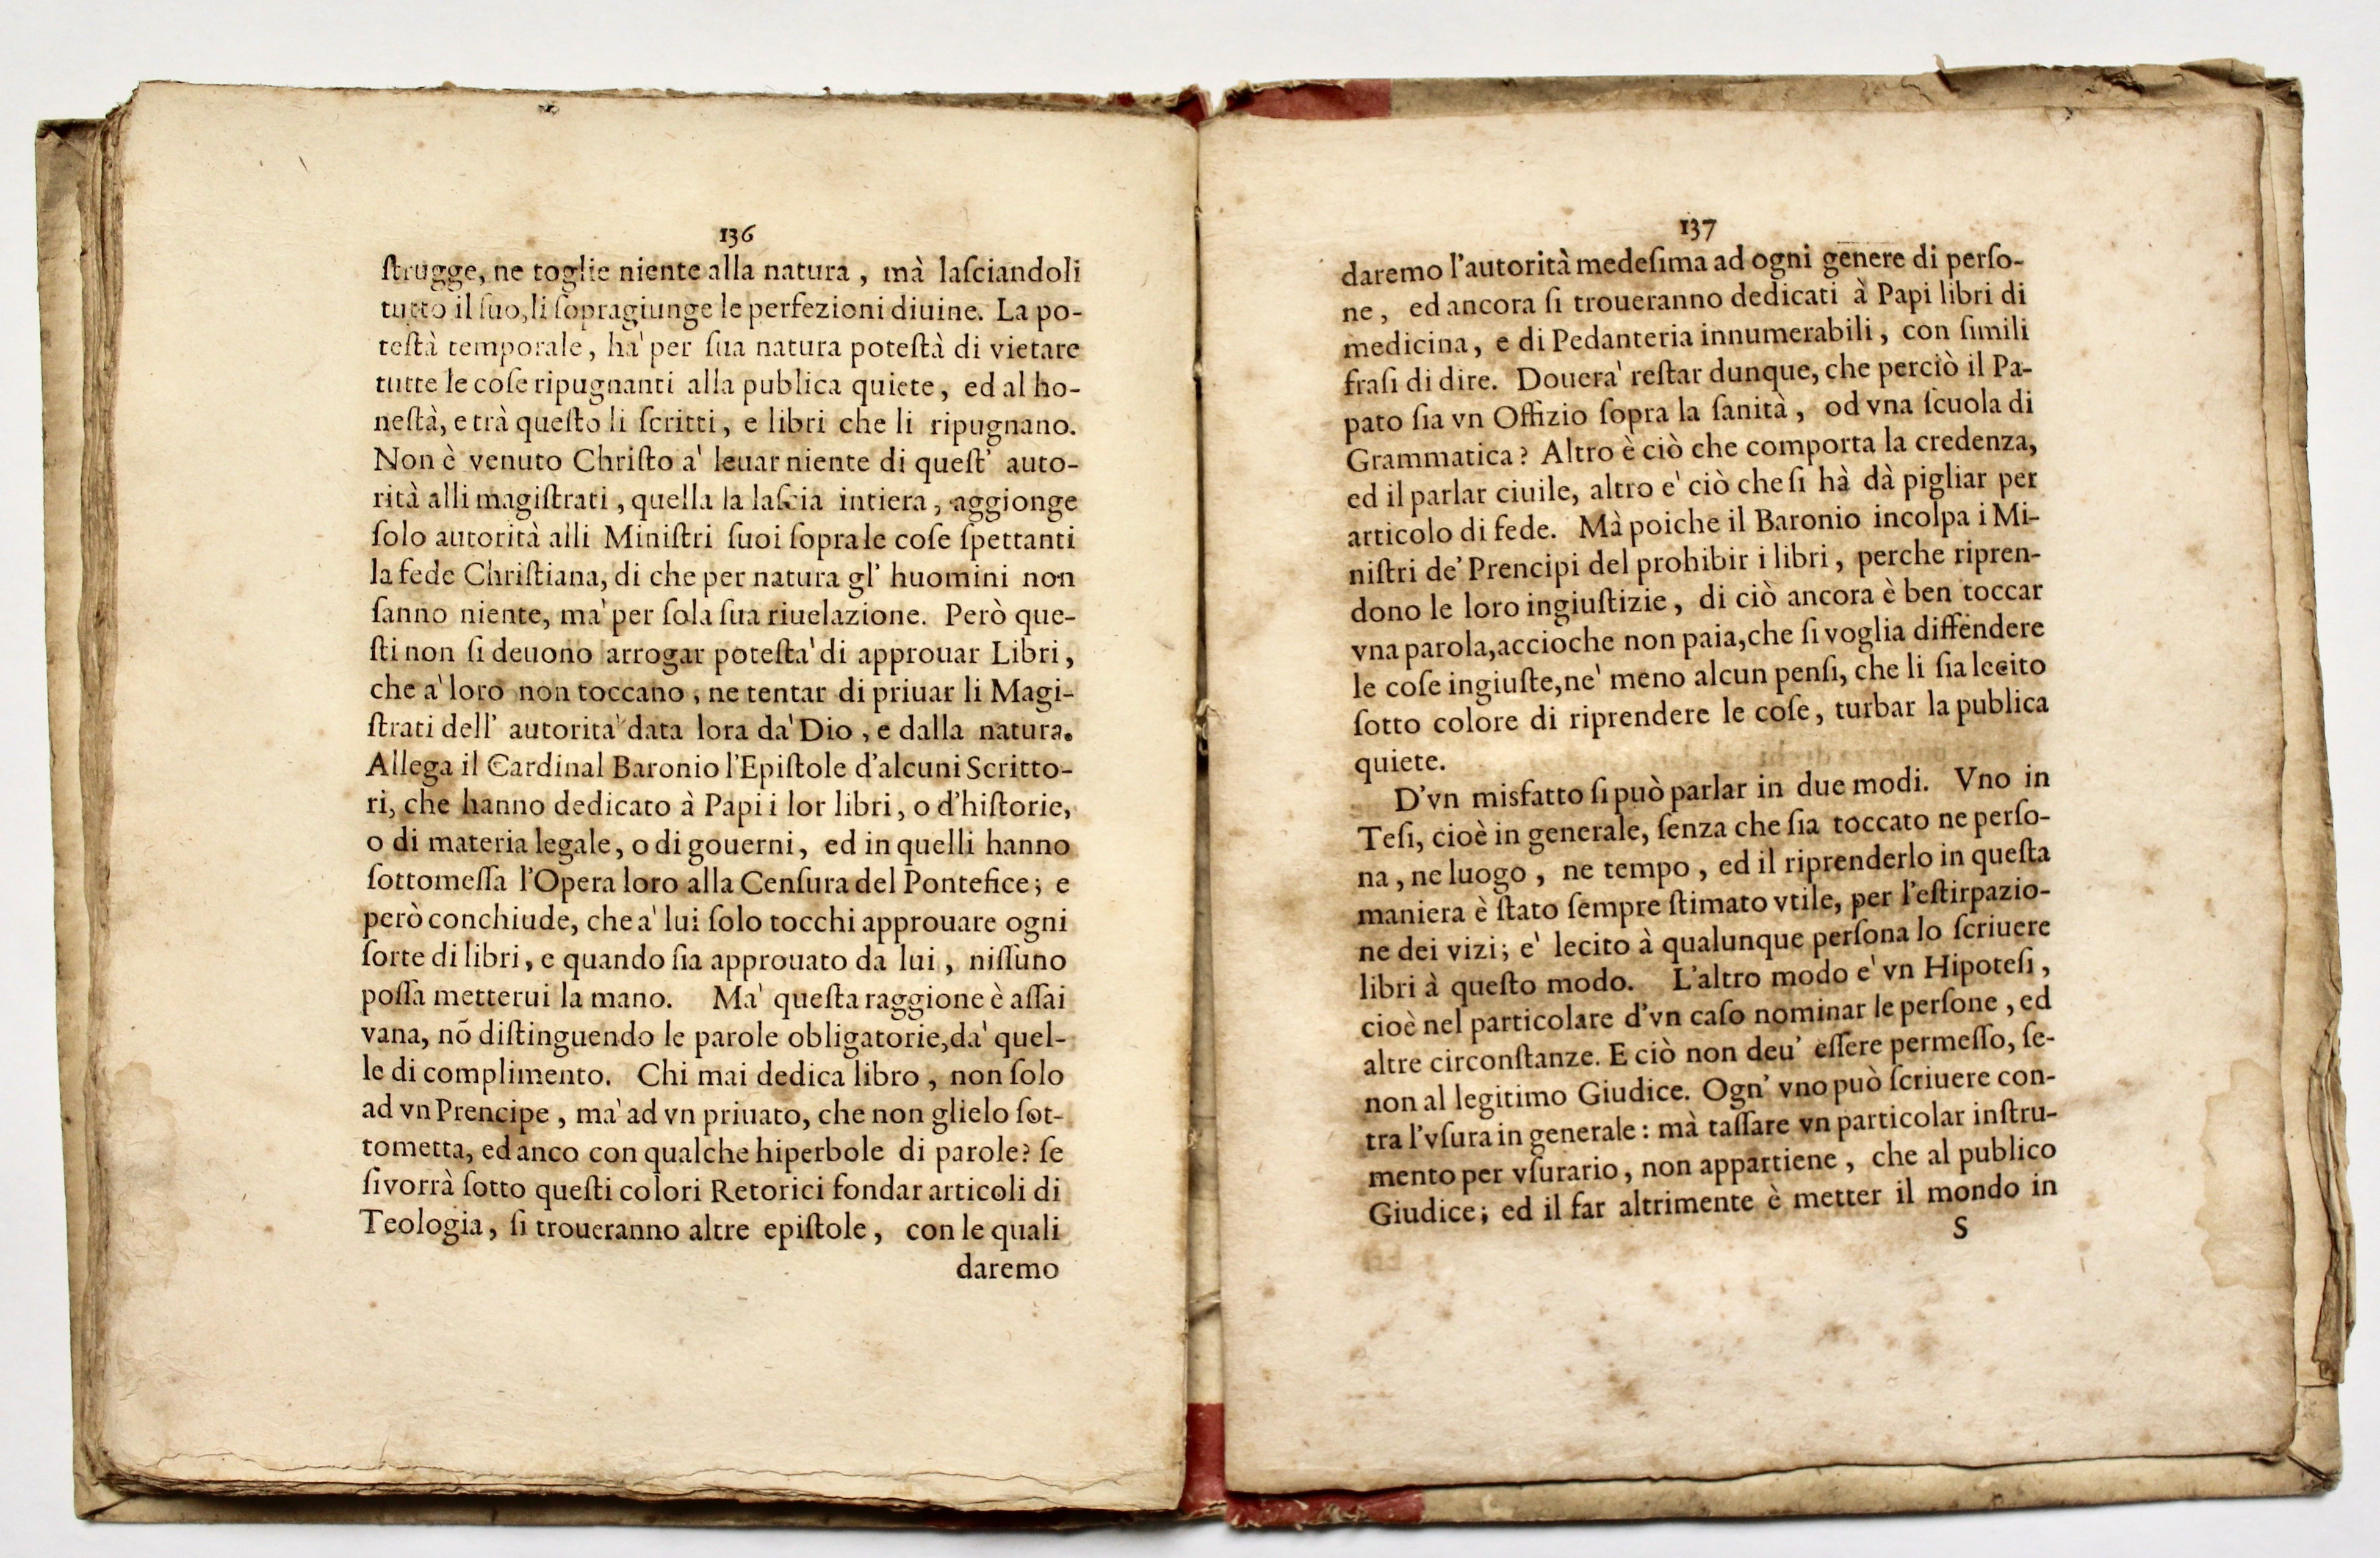 136
ſtrugge, ne toglie niente alla natura , mà laſciandoli
tutto il ſuo, li ſopragiunge le perfezioni diuine. La po-
teſtà temporale , ha' per ſua natura poteſtà di vietare
tutte le coſe ripugnanti alla publica quiete , ed al ho-
neſtà, e trà queſto li ſcritti , e libri che li ripugnano.
Non è venuto Chriſto a' leuar niente di queſt' auto-
rità alli magiſtrati , quella la laſcia intiera , aggionge
ſolo autorità alli Miniſtri ſuoi ſopra le coſe ſpettanti
la fede Chriſtiana, di che per natura gl' huomini non
ſanno niente, ma' per ſola ſua riuelazione. Però que-
ſti non ſi deuono arrogar poteſta' di approuar Libri ,
che a' loro non toccano , ne tentar di priuar li Magi-
ſtrati dell' autorita' data lora da' Dio , e dalla natura.
Allega il Cardinal Baronio l'Epiſtole d'alcuni Scritto-
ri, che hanno dedicato à Papi i lor libri , o d'hiſtorie,
o di materia legale , o di gouerni , ed in quelli hanno
ſottomeſſa l'Opera loro alla Cenſura del Pontefice; e
però conchiude, che a' lui ſolo tocchi approuare ogni
ſorte di libri , e quando ſia approuato da lui , niſſuno
poſſa metterui la mano. Ma' queſta raggione è aſſai
vana, nõ diſtinguendo le parole obligatorie,da' quel-
le di complimento. Chi mai dedica libro , non ſolo
ad vn Prencipe , ma' ad vn priuato, che non glielo ſot-
tometta, ed anco con qualche hiperbole di parole? ſe
ſi vorrà ſotto queſti colori Retorici fondar articoli di
Teologia , ſi troueranno altre epiſtole , con le quali
daremo
137
daremo l'autorità medeſima ad ogni genere di perſo-
ne , ed ancora ſi troueranno dedicati à Papi libri di
medicina, e di Pedanteria innumerabili , con ſimili
fraſi di dire. Douera' reſtar dunque, che perciò il Pa-
pato ſia vn Offizio ſopra la ſanità , od vna ſcuola di
Grammatica? Altro è ciò che comporta la credenza,
ed il parlar ciuile, altro e' ciò che ſi hà dà pigliar per
articolo di fede. Mà poiche il Baronio incolpa i Mi-
niſtri de' Prencipi del prohibir i libri , perche ripren-
dono le loro ingiuſtizie , di ciò ancora è ben toccar
vna parola,accioche non paia,che ſi voglia diffendere
le coſe ingiuſte,ne' meno alcun penſi, che li ſia lecito
ſotto colore di riprendere le coſe , turbar la publica
quiete.
D'vn misfatto ſi può parlar in due modi. Vno in
Teſi, cioè in generale, ſenza che ſia toccato ne perſo-
na , ne luogo , ne tempo , ed il riprenderlo in queſta
maniera è ſtato ſempre ſtimato vtile, per l'eſtirpazio-
ne dei vizi; e' lecito à qualunque perſona lo ſcriuere
libri à queſto modo. L'altro modo e' vn Hipoteſi ,
cioè nel particolare d'vn caſo nominar le perſone , ed
altre circonſtanze. E ciò non deu' eſſere permeſſo, ſe-
non al legitimo Giudice. Ogn' vno può ſcriuere con-
tra l'vſura in generale : mà taſſare vn particolar inſtru-
mento per vſurario , non appartiene , che al publico
Giudice; ed il far altrimente è metter il mondo in
S